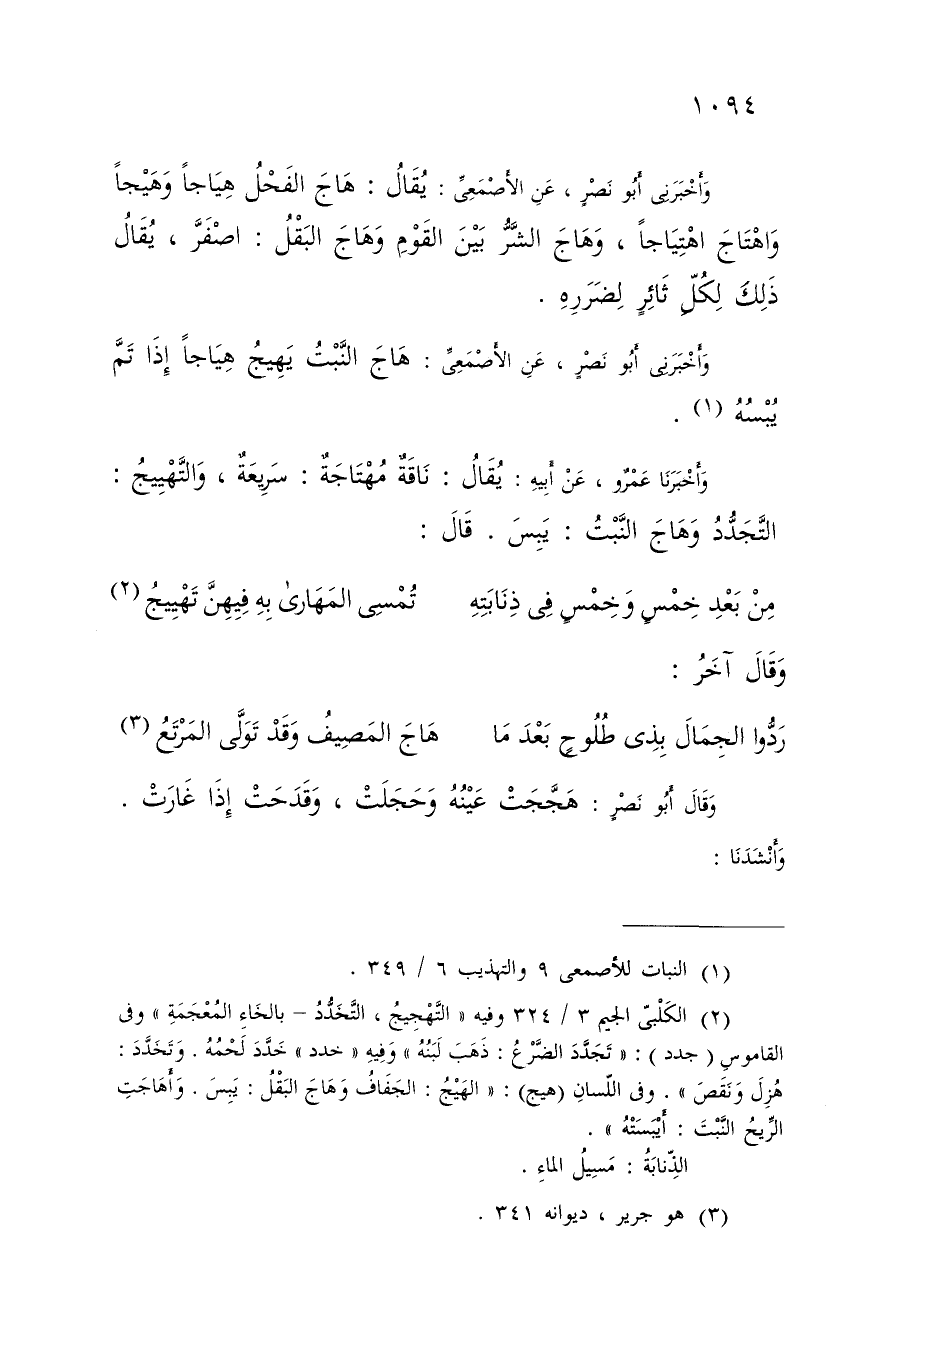 ١٠٩٤
وَأَخْبَرَنِى أَبُو نَصْرٍ ، عَنِ الأَصْمَعِىِّ : يُقَالُ : هَاجَ الفَحْلُ هِيَاجاً وَهَيْجاً
وَاهْتَاجَ اهْتِيَاجاً ، وَهَاجَ الشَّرُّ بَيْنَ القَوْمِ وَهَاجَ البَقْلُ : اصْفَرَّ ، يُقَالُ
ذَلِكَ لِكُلِّ ثَائِرٍ لِضَرَرِهِ .
وَأَخْبَرَنِى أَبُو نَصْرٍ ، عَنِ الأَصْمَعِىِّ : هَاجَ النَّبْتُ يَهِيجُ هِيَاجاً إِذَا تَمَّ
يُبْسُهُ (١) .
وَأَخْبَرَنَا عَمْرٌو ، عَنْ أَبِيهِ : يُقَالُ : نَاقَةٌ مُهْتَاجَةٌ : سَرِيعَةٌ ، وَالتَّهْيِيجُ :
التَّجَدُّدُ وَهَاجَ النَّبْتُ : يَبِسَ . قَالَ :
مِنْ بَعْدِ خِمْسٍ وَخِمْسٍ فِى ذِنَابَتِهِ تُمْسِى المَهَارىٰ بِهِ فِيهِنَّ تَهْيِيجُ (٢)
وَقَالَ آخَرُ :
رَدُّوا الجِمَالَ بِذِى طُلُوحٍ بَعْدَ مَا هَاجَ المَصِيفُ وَقَدْ تَوَلَّى المَرْتَعُ (٣)
وَقَالَ أَبُو نَصْرٍ : هَجَّجَتْ عَيْنُهُ وَحَجَلَتْ ، وَقَدَحَتْ إِذَا غَارَتْ .
وَأَنْشَدَنَا :
(١) النبات للأصمعى ٩ والتهذيب ٦ / ٣٤٩ .
(٢) الكَلْبىّ الجيم ٣ / ٣٢٤ وفيه « التَّهْجِيجُ ، التَّخَدُّدُ – بالخَاءِ المُعْجَمَةِ » وفى
القاموسِ ( جدد ) : « تَجَدَّدَ الضَّرْعُ : ذَهَبَ لَبَنُهُ » وَفِيهِ « خدد » خَدَّدَ لَحْمُهُ . وَتَخَدَّدَ :
هُزِلَ وَنَقَصَ » . وفى اللّسانِ (هيج) : « الهَيْجُ : الجَفَافُ وَهَاجَ البَقْلُ : يَبِسَ . وَأَهَاجَتِ
الرِّيحُ النَّبْتَ : أَيْبَسَتْهُ » .
الذِّنابَةُ : مَسِيلُ الماءِ .
(٣) هو جرير ، ديوانه ٣٤١ .